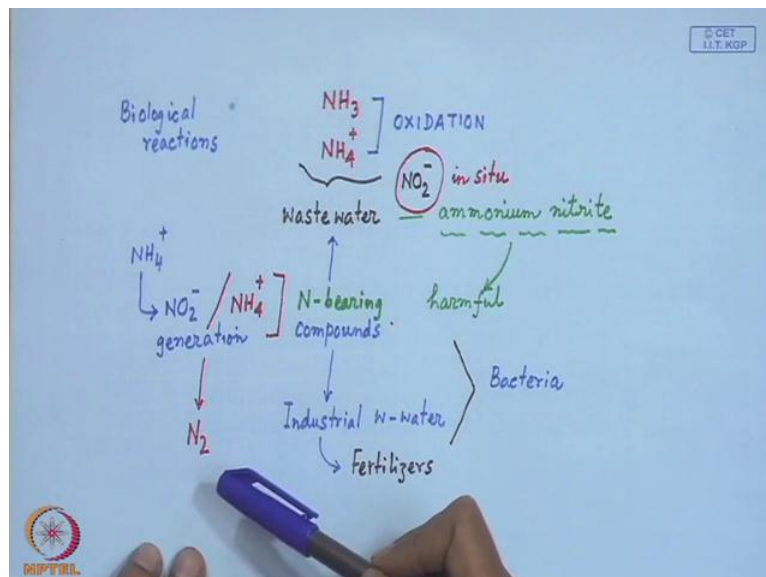 © CET
I.I.T. KGP
Biological
reactions
NH3
NH4+
OXIDATION
NO2- in situ
Waste water
ammonium nitrite
NH4+
NO2- / NH4+
generation
N-bearing
compounds.
harmful
Bacteria
N2
Industrial W-water
Fertilizers
NPTEL